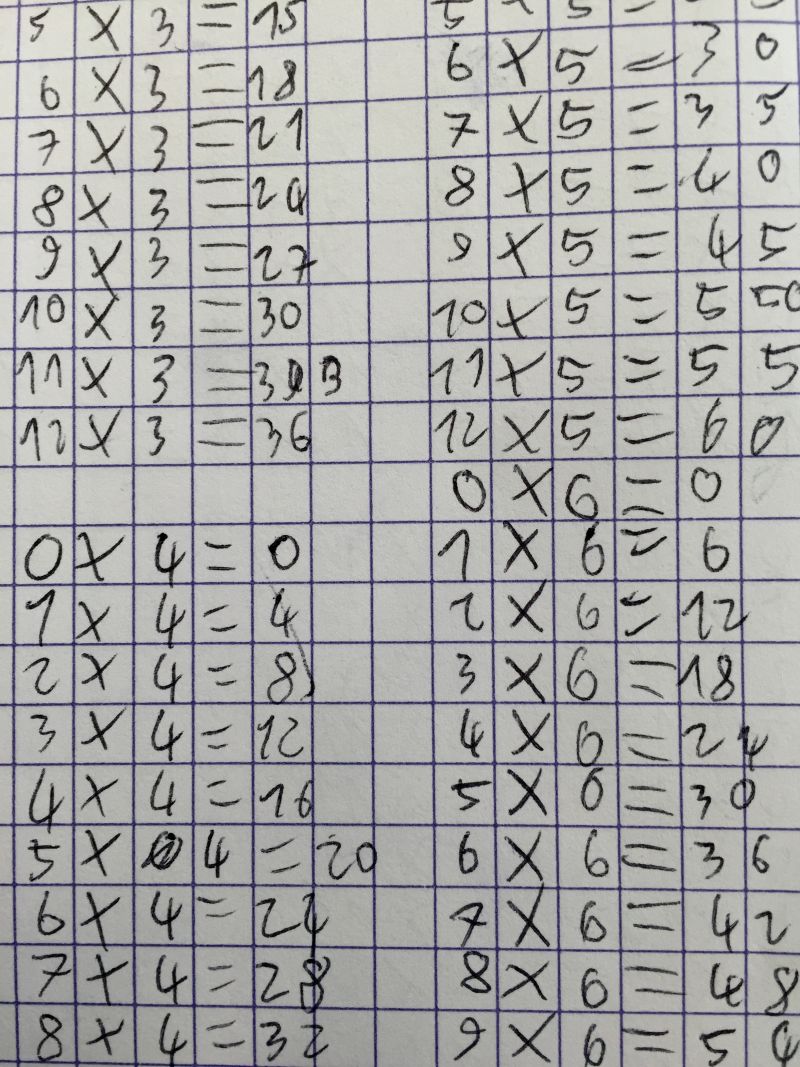 5 × 3 = 15
6 × 3 = 18
7 × 3 = 21
8 × 3 = 24
9 × 3 = 27
10 × 3 = 30
11 × 3 = 33
12 × 3 = 36
0 × 4 = 0
1 × 4 = 4
2 × 4 = 8
3 × 4 = 12
4 × 4 = 16
5 × 4 = 20
6 × 4 = 24
7 × 4 = 28
8 × 4 = 32
5 × 5 =
6 × 5 = 30
7 × 5 = 35
8 × 5 = 40
9 × 5 = 45
10 × 5 = 5 50
11 × 5 = 55
12 × 5 = 60
0 × 6 = 0
1 × 6 = 6
2 × 6 = 12
3 × 6 = 18
4 × 6 = 24
5 × 6 = 30
6 × 6 = 36
7 × 6 = 42
8 × 6 = 48
9 × 6 = 54